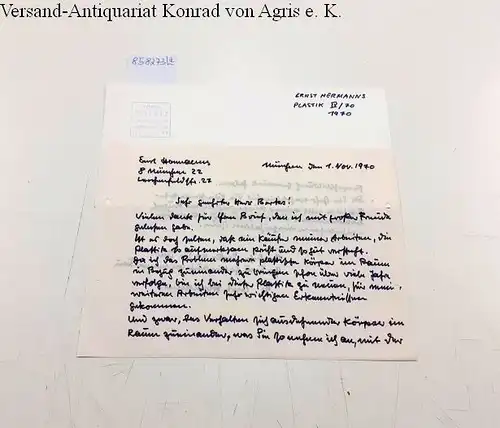 Versand-Antiquariat Konrad von Agris e. K.
858273/2
ERNST HERMANNS
PLASTIK IV/70
1970
Ernst Hermanns
8 München 22
27
München den 1. Nov. 1970
Sehr geehrter Herr
Vielen Dank für Ihren Brief, den ich mit großer Freude
gelesen habe.
Ist es doch selten, daß ein Käufer meiner Arbeiten, die
Plastik so aufmerksam sieht und so gut versteht.
Da ich das Problem mehrere plastische Körper im Raum
in Bezug zueinander zu bringen schon über viele Jahre
verfolge, bin ich bei dieser Plastik zu neuen, für meine
weiteren Arbeiten sehr wichtigen Erkenntnissen
gekommen.
Und zwar, das Verhalten sich ausdehnender Körper im
Raum zueinander, was Sie so nehme ich an, mit der